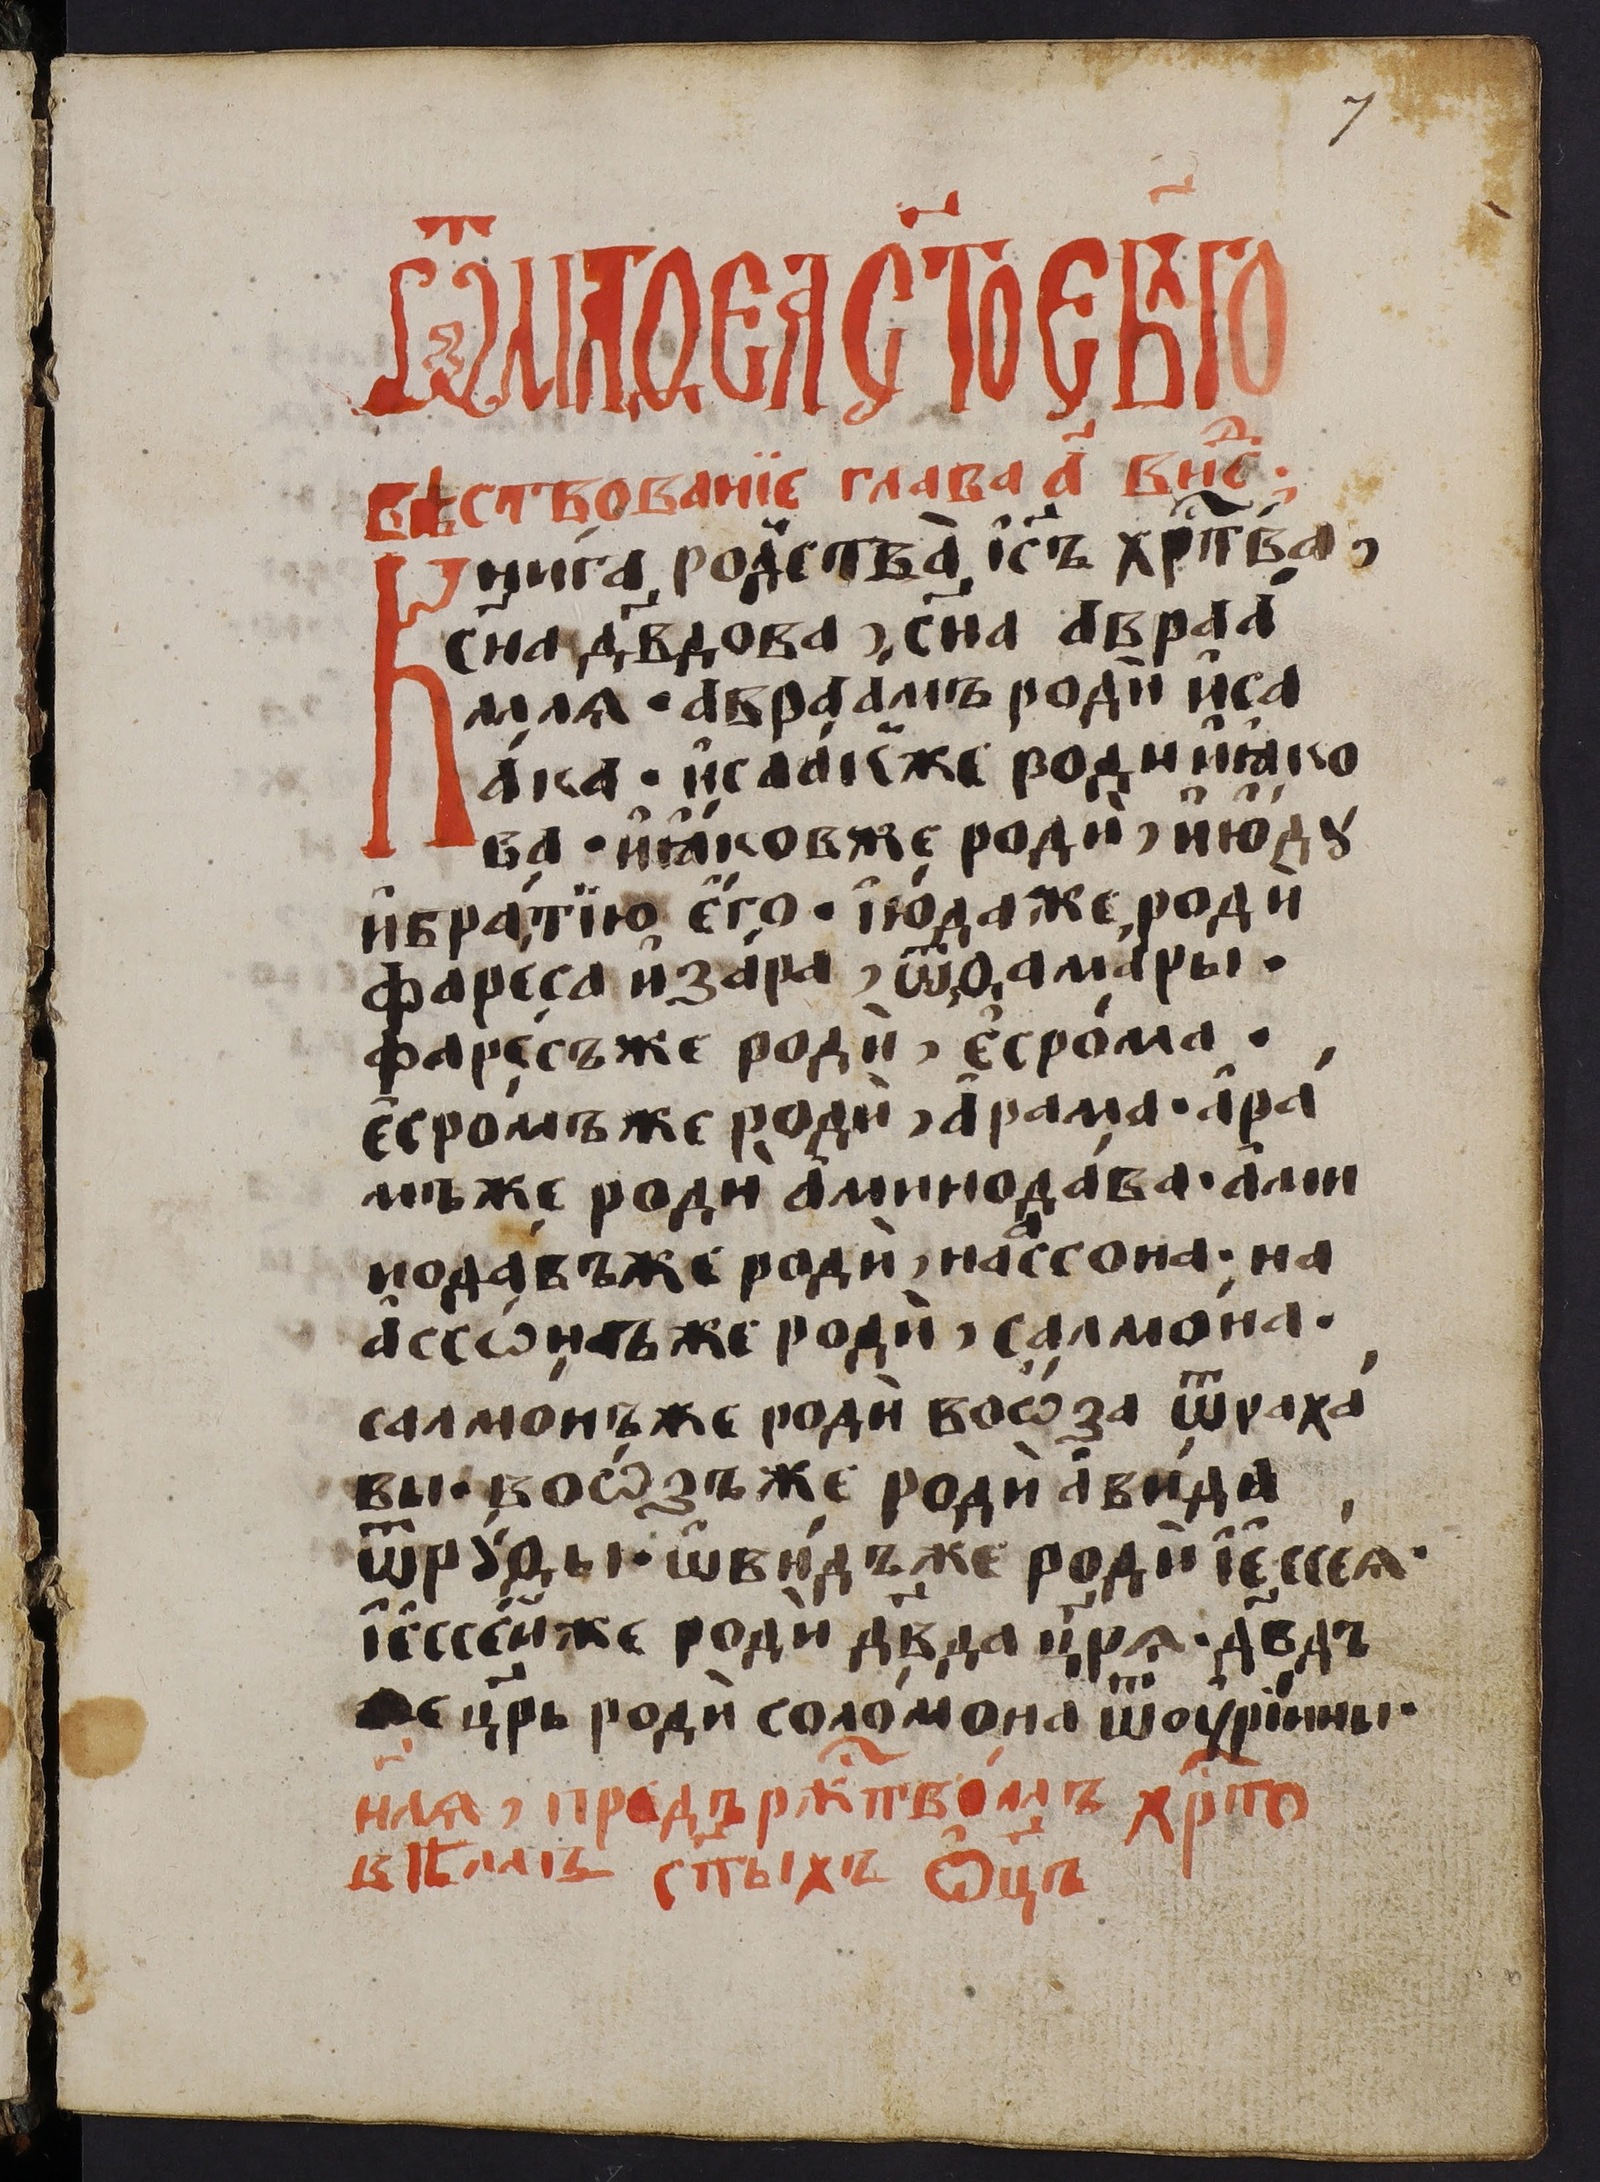 7
Ѿ МАТѲЕѦ СТ҃ОЕ БЛГО
вѣствованїе глава а҃ внⷣе҃ :
Книга родства і҆с҃ъ хрⷭ҇това,
сн҃а дв҃дова, сн҃а авраа
мля · авраамъ роди и҆са
а́ка · и҆саакже роди и҆ꙗко
ва · и҆ꙗковже роди, и҆юдꙋ
и҆братїю є҆го · і҆юдаже роди
фареса и҆зара, ѿѳамары ·
фаресъже роди, є҆срома ·
є҆сромъже роди, а҆рама · а҆ра
мъже роди а҆минодава · а҆ми
нодавъже роди, наассона · на
а҆ссѡнъже роди, салмона ·
салмонъже роди воѡза ѿраха
вы · воѡзъже роди ѡ҆вида
ѿрꙋѳы · ѡ҆видъже роди і҆ессеа ·
і҆ессейже роди дв҃да цр҃ѧ · дв҃дъ
же цр҃ь роди соломона ѿоурїины ·
нлѧ, предъ ржⷭ҇твомъ хрⷭ҇то
вѣмъ ст҃ыхъ ѻ҆ц҃ъ